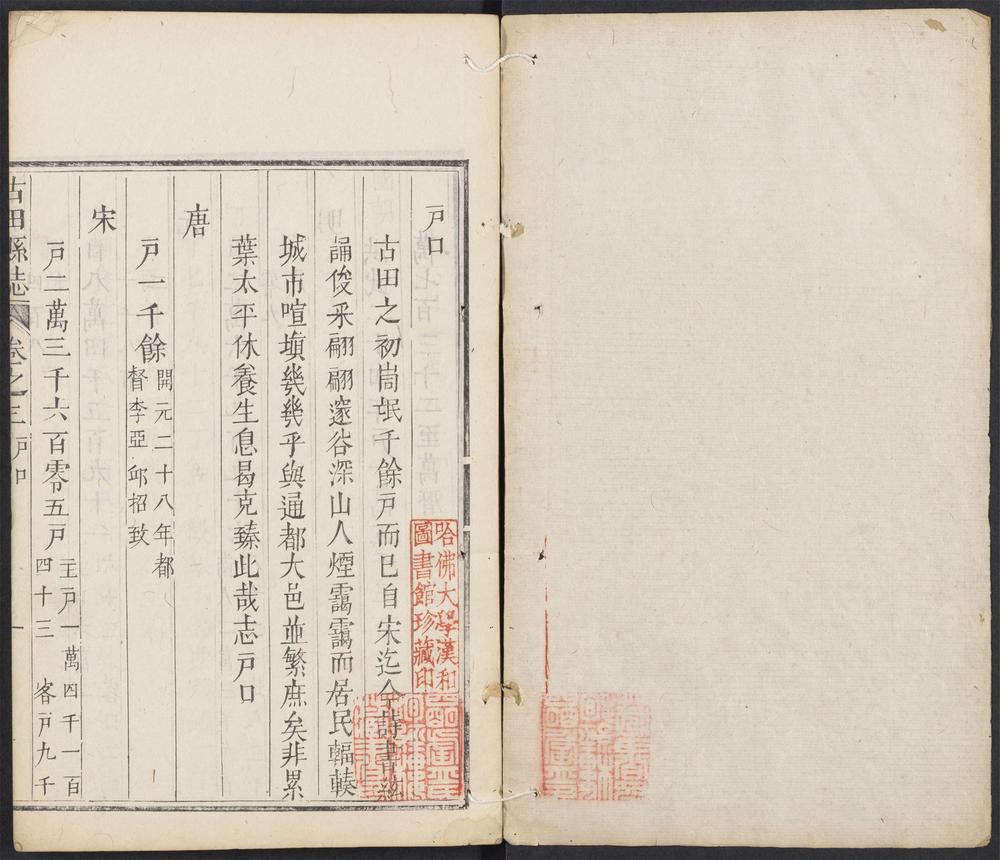 戸口
古田之初峝氓千餘戸而已自宋迄今詩書絃
誦俊采翩翩邃谷深山人煙靄靄而居民輻輳
城市喧塡幾幾乎與通都大邑並繁庶矣非累
葉太平休養生息曷克臻此哉志戸口
唐
戸一千餘開元二十八年都
督李亞邱招致
宋
戸二萬三千六百零五戸主戸一萬四千一百
四十三 客戸九千
古田縣志 卷之三 戸口 一
哈佛大學漢和
圖書館珍藏印